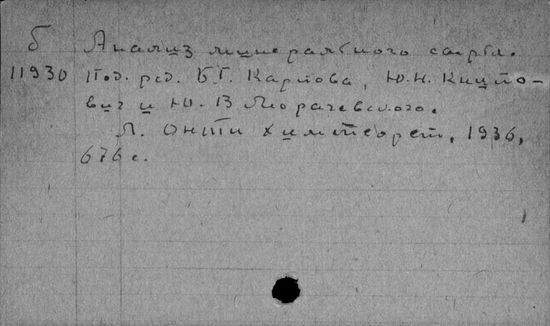 Б Анализ минерального сырья.
11930 Под. ред. Б.Г. Карпова, Ю.Н. Книпо-
вич и Ю. В Морачевского.
Л. ОНТИ Химтеорет, 1936,
676 с.